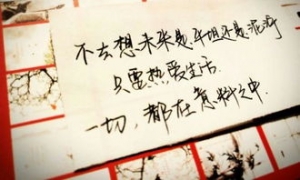 不去想未来是平坦还是泥泞
只要热爱生活
一切，都在意料之中.